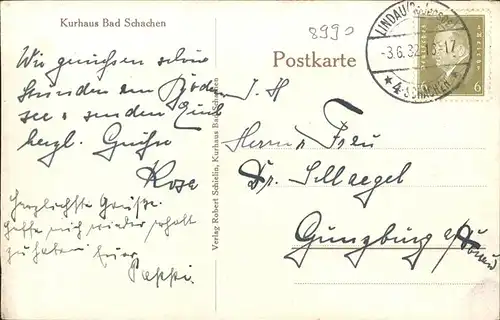 Kurhaus Bad Schachen
8990
Postkarte
LINDAU (Bodensee)
-3.6.32. 16-17
* 4-SCHACHEN *
6
Wir genießen schöne
Stunden am Boden
see u. senden Euch
herzl. Grüße
Rose
Herzlichste Grüße.
zu haben Euer
Pappi.
Verlag Robert Schielin, Kurhaus Bad Schachen
I. H
Herrn u. Frau
Dr.
Günzburg a/Donau